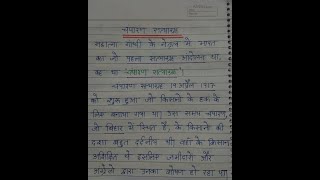 चंपारण सत्याग्रह
महात्मा गांधी के नेतृत्व में भारत
का जो पहला सत्याग्रह आंदोलन था,
वह था चंपारण सत्याग्रह।
चंपारण सत्याग्रह 19 अप्रैल 1917
को शुरू हुआ जो किसानों के हक के
लिए चलाया गया था। उस समय चंपारण,
जो बिहार में स्थित है, के किसानों की
दशा बहुत दर्दनीय थी। वहाँ के किसान
अशिक्षित थे इसलिए जमींदारों और
अंग्रेजों द्वारा उनका शोषण हो रहा था।